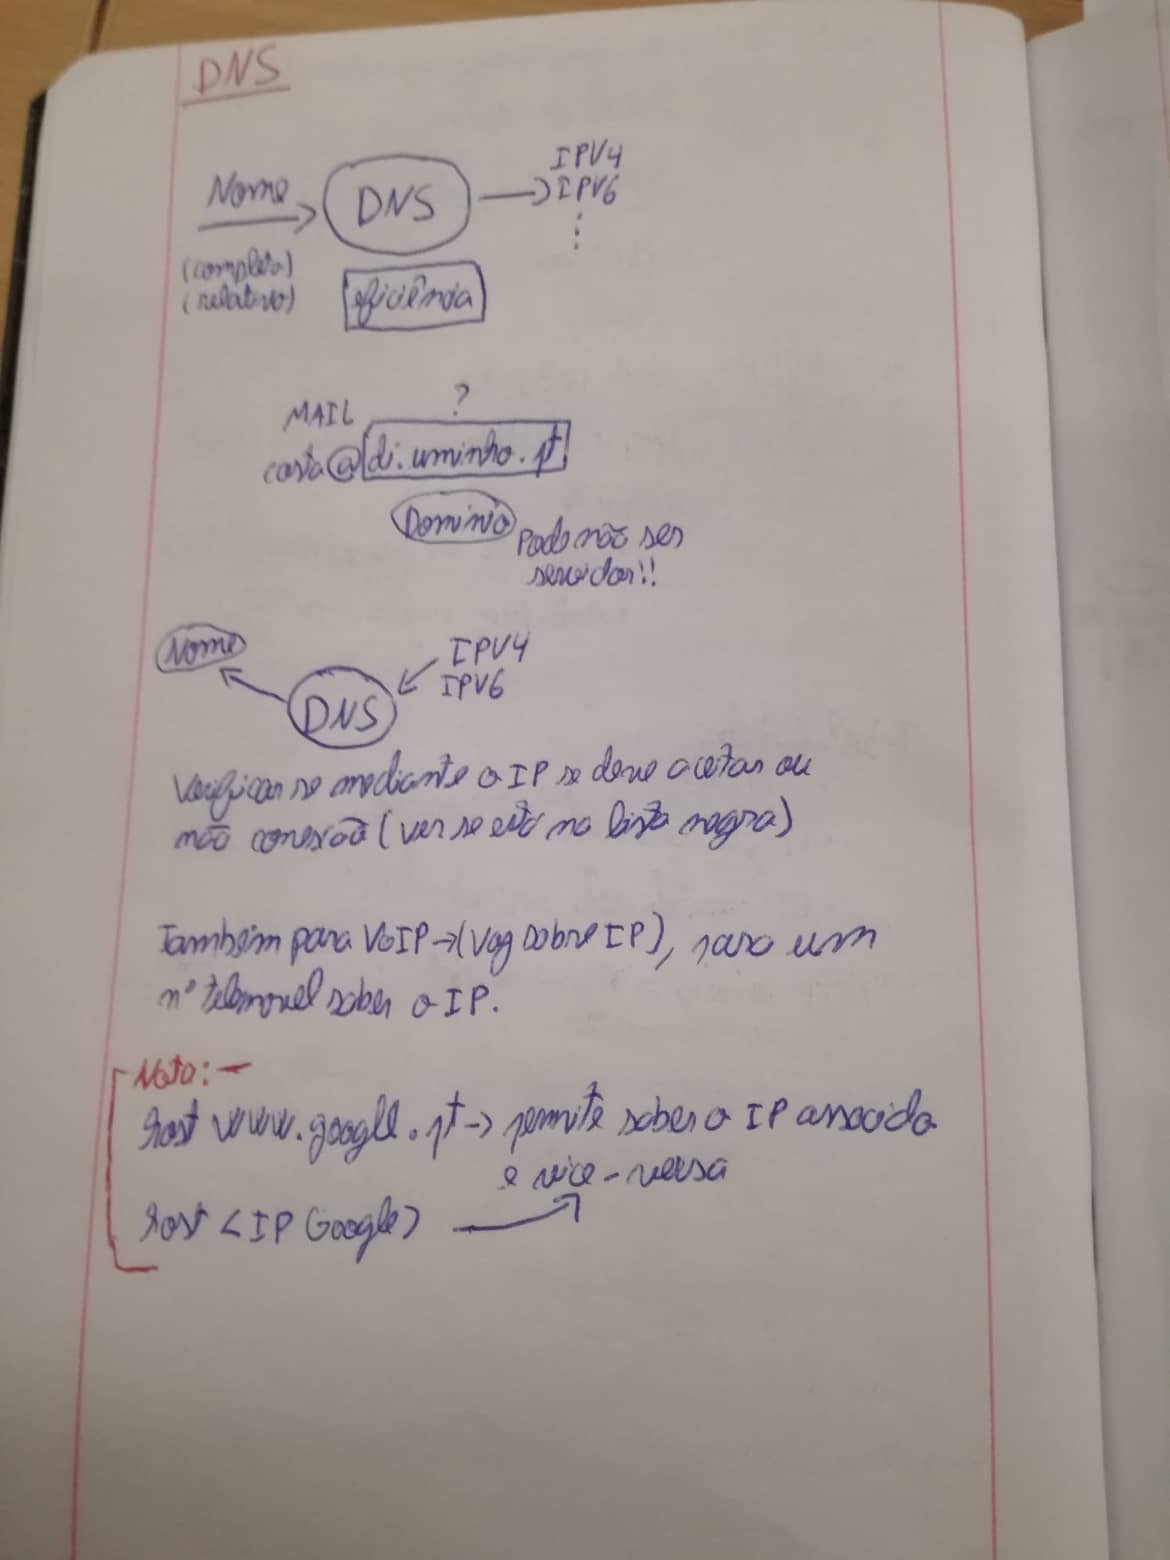 DNS
Nome
(completo)
(relativo)
DNS
eficiência
IPV4
IPV6
⋮
MAIL
?
costa@di.uminho.pt
Dominio
Pode não ser
servidor!!
Nome
DNS
IPV4
IPV6
Verificar se mediante o IP se deve aceitar ou
não conexão (ver se está na lista negra)
Também para VoIP→(Voz sobre IP), para um
nº telemovel saber o IP.
Nota:-
host www.google.pt -> permite saber o IP associado
e vice-versa
host <IP Google>